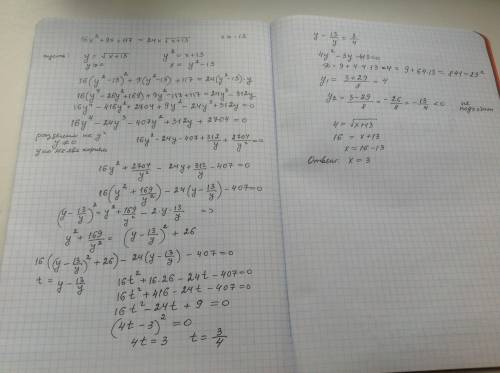 16x² + 9x + 117 = 24x √x+13    x ≥ -13
пусть: y = √x+13    y² = x+13
y ≥ 0    x = y² - 13
16(y²-13)² + 9(y²-13) + 117 = 24(y²-13)·y
16(y⁴-26y²+169) + 9y² - 117 + 117 = 24y³ - 312y
16y⁴ - 416y² + 2704 + 9y² - 24y³ + 312y = 0
16y⁴ - 24y³ - 407y² + 312y + 2704 = 0
разделить на y²
y ≠ 0    16y² - 24y - 407 + 312/y + 2704/y² = 0
y=0 не явл корнем
16y² + 2704/y² - 24y + 312/y - 407 = 0
16(y² + 169/y²) - 24(y - 13/y) - 407 = 0
(y - 13/y)² = y² + 169/y² - 2·y·13/y =>
y² + 169/y² = (y - 13/y)² + 26
16((y - 13/y)² + 26) - 24(y - 13/y) - 407 = 0
t = y - 13/y    16t² + 16·26 - 24t - 407 = 0
16t² + 416 - 24t - 407 = 0
16t² - 24t + 9 = 0
(4t - 3)² = 0
4t = 3    t = 3/4
y - 13/y = 3/4
4y² - 3y - 4·13 = 0
D = 9 + 4·4·13·4 = 9 + 64·13 = 841 = 29²
y₁ = (3+29)/8 = 4
y₂ = (3-29)/8 = -26/8 = -13/4 < 0 не
подходит
4 = √x+13
16 = x+13
x = 16-13
Ответ: x = 3